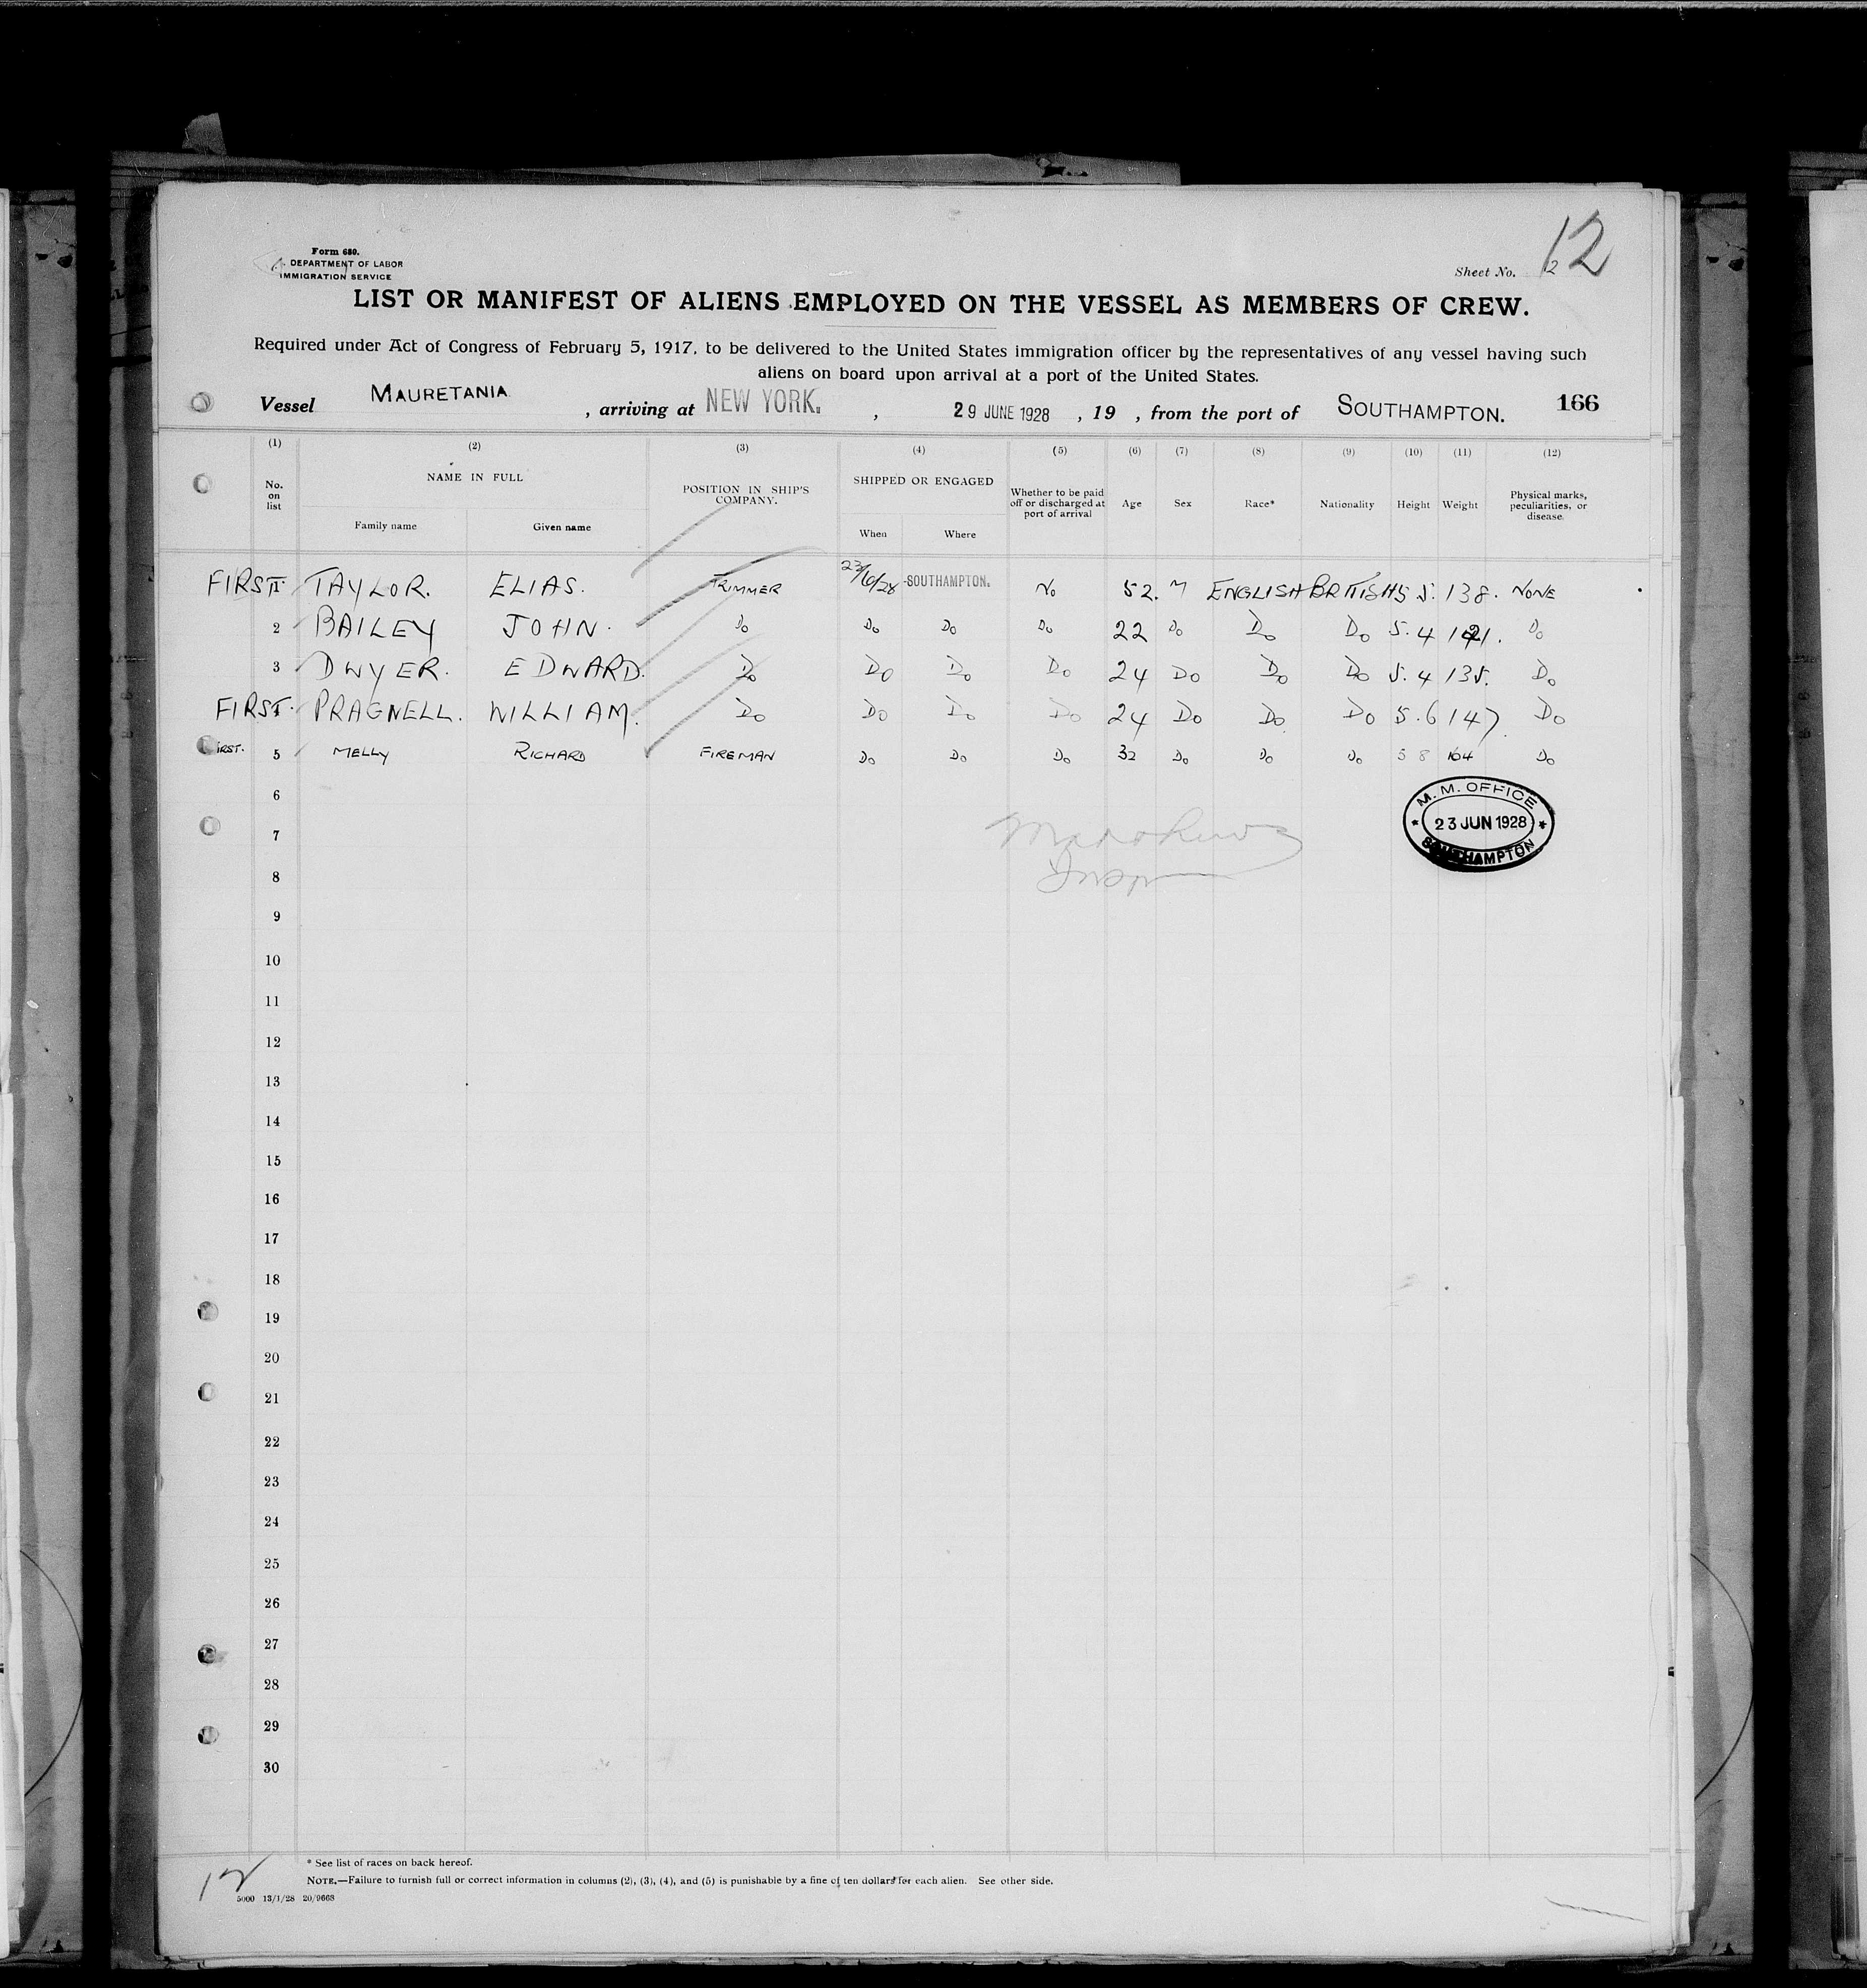 Form 680.
DEPARTMENT OF LABOR
IMMIGRATION SERVICE
Sheet No. 2 12
LIST OR MANIFEST OF ALIENS EMPLOYED ON THE VESSEL AS MEMBERS OF CREW.
Required under Act of Congress of February 5, 1917, to be delivered to the United States immigration officer by the representatives of any vessel having such
aliens on board upon arrival at a port of the United States.
Vessel MAURETANIA , arriving at NEW YORK. , 29 JUNE 1928 , 19 , from the port of SOUTHAMPTON. 166
(1) (2) (3) (4) (5) (6) (7) (8) (9) (10) (11) (12)
No. on list NAME IN FULL Family name Given name POSITION IN SHIP'S COMPANY. SHIPPED OR ENGAGED When Where Whether to be paid off or discharged at port of arrival Age Sex Race* Nationality Height Weight Physical marks, peculiarities, or disease.
FIRST TAYLOR. ELIAS. TRIMMER 23/6/28 SOUTHAMPTON. No 52. M ENGLISH BRITISH 5 5. 138. NONE
2 BAILEY JOHN. Do Do Do Do 22 Do Do Do 5.4 Do
3 DWYER. EDWARD. Do Do Do Do 24 Do Do Do 5.4 135. Do
FIRST. PRAGNELL. WILLIAM. Do Do Do Do 24 Do Do Do 5.6 147 Do
FIRST. 5 MELLY RICHARD FIREMAN Do Do Do 32 Do Do Do 5 8 164 Do
6
M. M. OFFICE
23 JUN 1928
SOUTHAMPTON
7
8
9
10
11
12
13
14
15
16
17
18
19
20
21
22
23
24
25
26
27
28
29
30
* See list of races on back hereof.
NOTE.—Failure to furnish full or correct information in columns (2), (3), (4), and (5) is punishable by a fine of ten dollars for each alien. See other side.
12
5000 13/1/28 20/9668